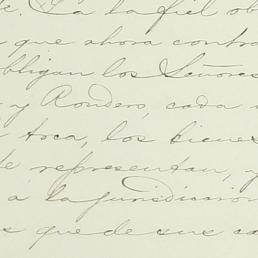 . La la fiel ob
que ahora contra
bligan los Señores
y Rondero, cada u
toca, los bienes
representan, y
á la jurisdiccion
s que de sus ca